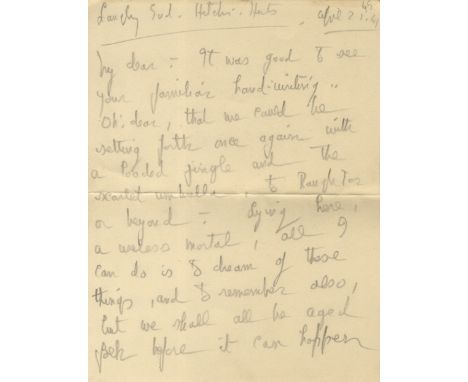 Langley End. Hitchin. Herts
April 21st. 41
My dear – It was good to see
your familiar hand-writing..
Oh! dear, that we could be
setting forth once again with
a loaded jingle and the
scarlet umbrella, to Rough Tor
or beyond – Lying here,
a useless mortal, all I
can do is to dream of these
things, and to remember also,
that we shall all be aged
before it can happen